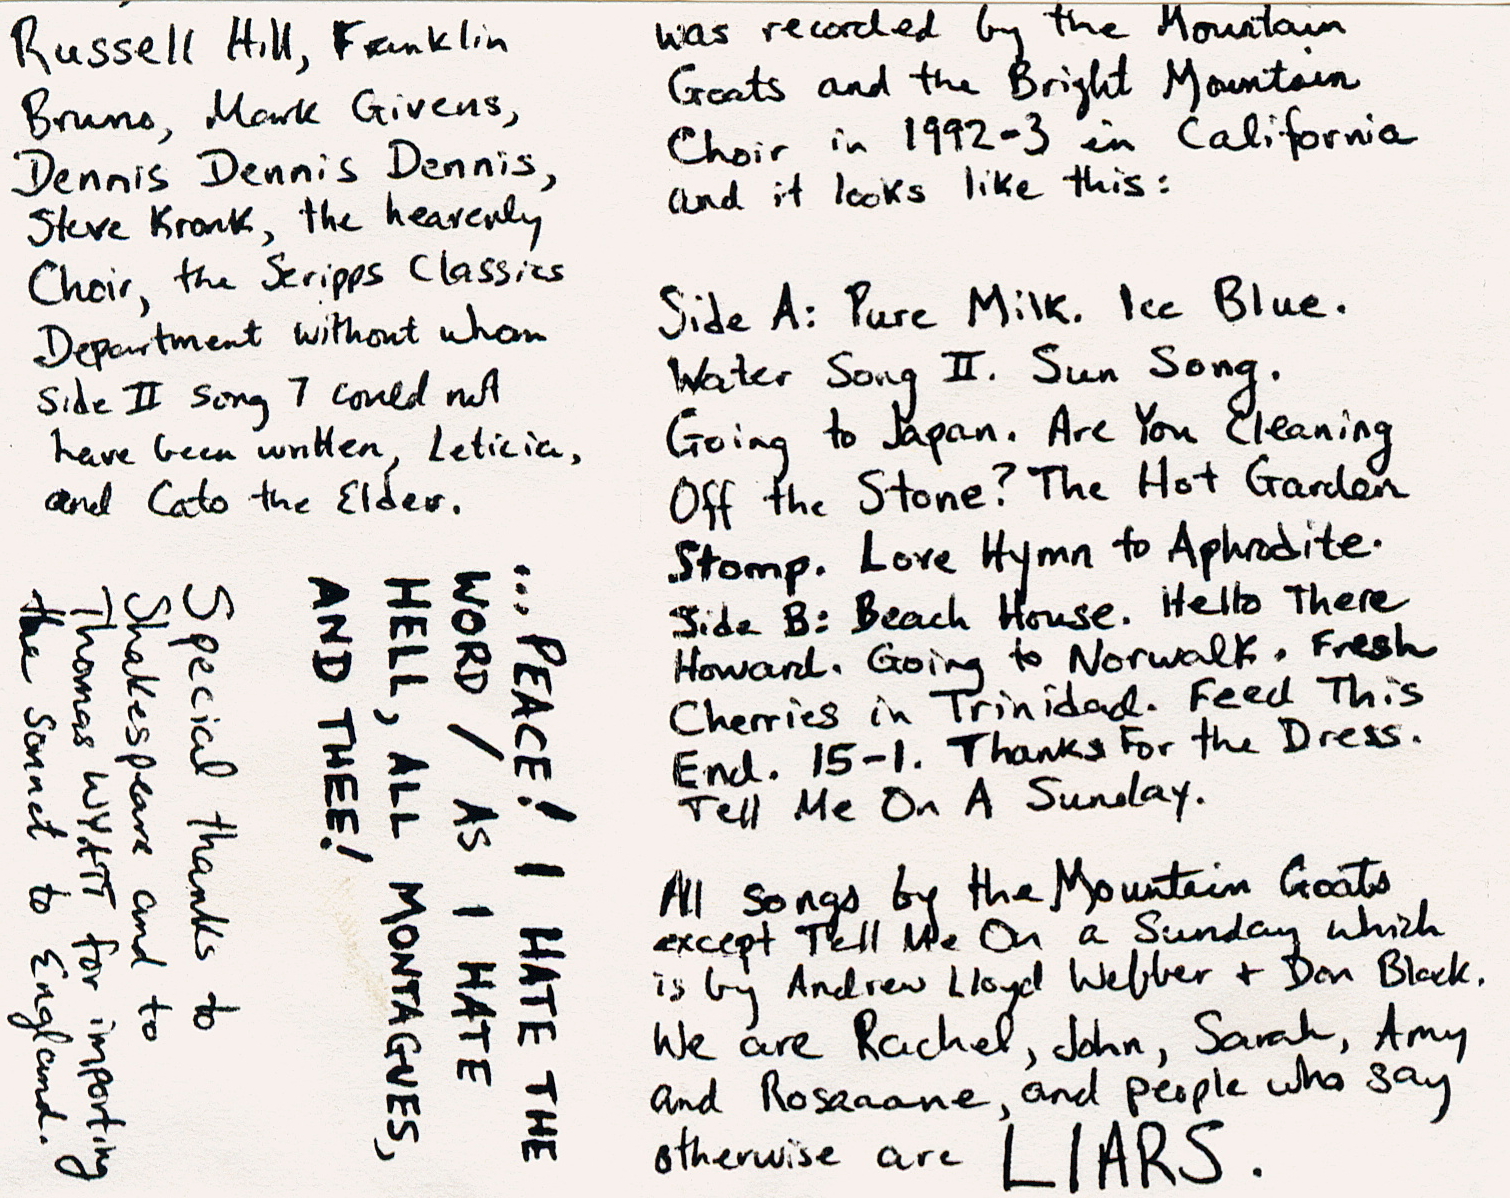 Russell Hill, Franklin
Bruno, Mark Givens,
Dennis Dennis Dennis,
Steve Kronk, the heavenly
Choir, the Scripps Classics
Department without whom
Side II song 7 could not
have been written, Leticia,
and Cato the Elder.
...PEACE! I HATE THE
WORD / AS I HATE
HELL, ALL MONTAGUES,
AND THEE!
Special thanks to
Shakespeare and to
Thomas WYATT for importing
the Sonnet to England.
was recorded by the Mountain
Goats and the Bright Mountain
Choir in 1992-3 in California
and it looks like this:
Side A: Pure Milk. Ice Blue.
Water Song II. Sun Song.
Going to Japan. Are You Cleaning
Off the Stone? The Hot Garden
Stomp. Love Hymn to Aphrodite.
Side B: Beach House. Hello There
Howard. Going to Norwalk. Fresh
Cherries in Trinidad. Feed This
End. 15-1. Thanks For the Dress.
Tell Me On A Sunday.
All songs by the Mountain Goats
except Tell Me On a Sunday which
is by Andrew Lloyd Webber + Don Black.
We are Rachel, John, Sarah, Amy
and Rosaaane, and people who say
otherwise are LIARS.